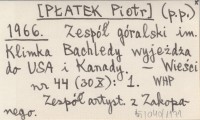 [PŁATEK Piotr] (p.p.)
1966. Zespół góralski im.
Klimka Bachledy wyjeżdża
do USA i Kanady. — Wieści
nr 44 (30 X): 1. WHP
Zespół artyst. z Zakopa-
nego.